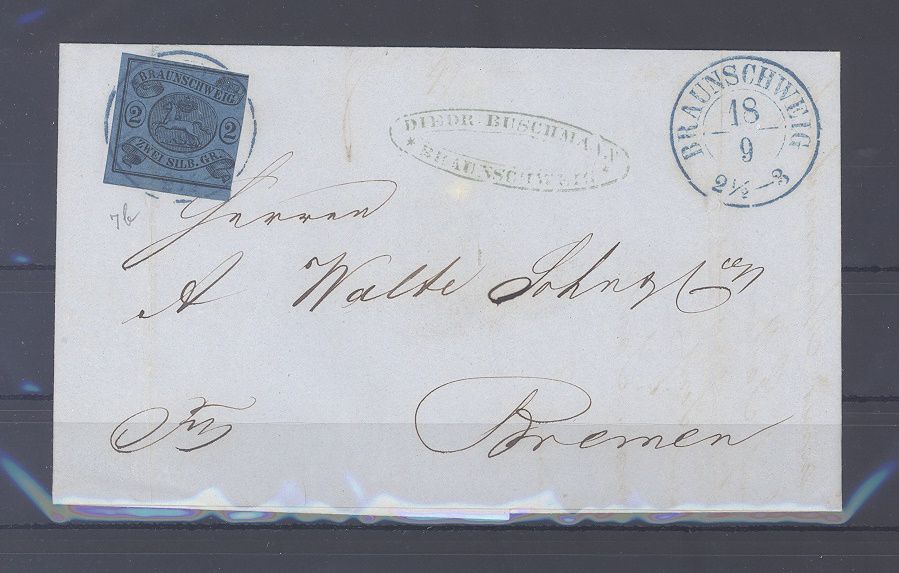 BRAUNSCHWEIG
2 2
ZWEI SILB. GR.
DIEDR. BUSCHMANN
* BRAUNSCHWEIG *
BRAUNSCHWEIG
18
9
2½-3
7b
Herren
A Walte Sohn & Co
Bremen